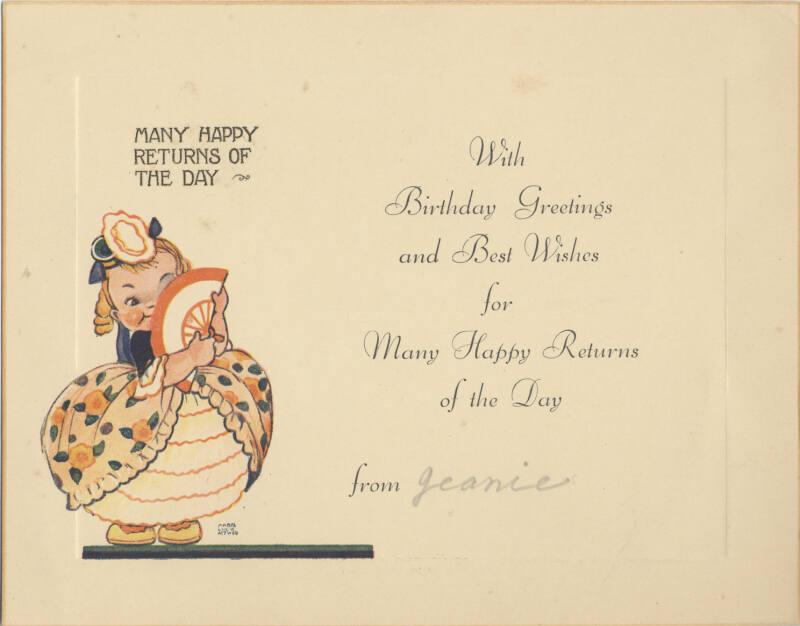 MANY HAPPY
RETURNS OF
THE DAY
With
Birthday Greetings
and Best Wishes
for
Many Happy Returns
of the Day
from Jeanie
MABEL
LUCIE
ATTWELL